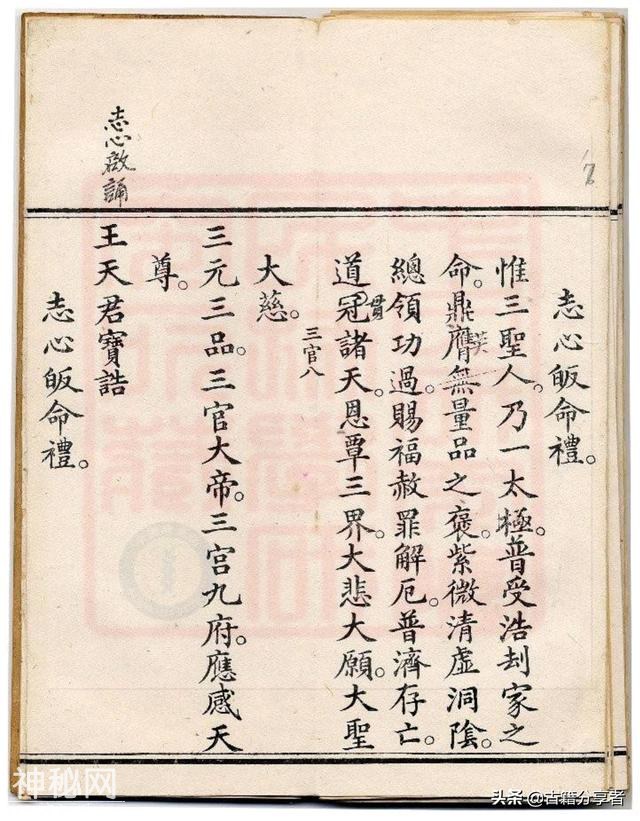 志心皈命禮。
惟三聖人。乃一太極。普受浩刦家之
命。鼎膺無量品之褒。紫微清虛洞陰。
總領功過。賜福赦罪解厄。普濟存亡。
道冠諸天。恩覃三界。大悲大願。大聖
貫
三官八
大慈。
三元三品。三官大帝。三宫九府。應感天
尊。
王天君寶誥
志心皈命禮。
志心啟誦
神秘网
头条@古籍分享者